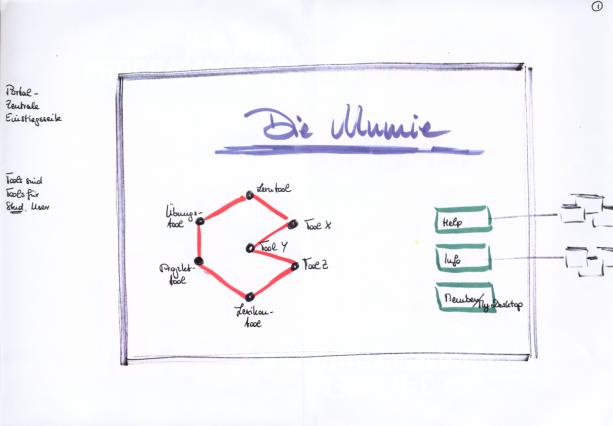 1
Portal-
Zentrale
Einstiegsseite
Tools sind
Tools für
Stud. User
Die Mumie
Lerntool
Übungs-
tool
Tool X
Tool Y
Tool Z
Projekt-
tool
Lexikon-
tool
Help
Info
Member/My Desktop